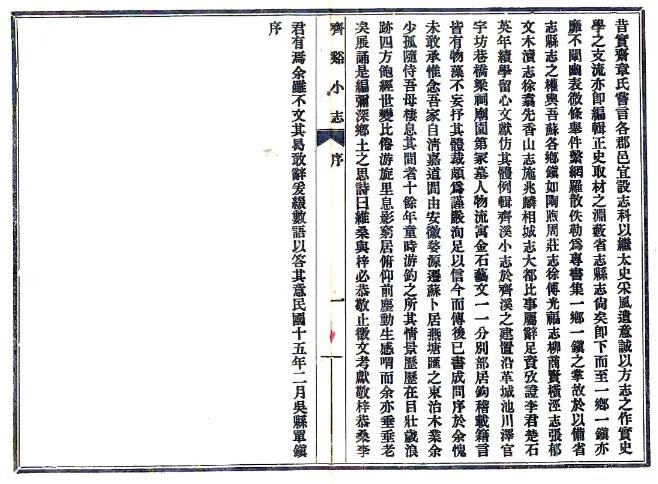 昔實齋章氏嘗言各郡邑宜設志科以繼太史采風遺意誠以方志之作實史
學之支流亦卽編輯正史取材之淵藪省志縣志尙矣卽下而至一鄉一鎭亦
靡不闡幽表微條舉件繫網羅散佚勒爲專書集一鄉一鎭之掌故於以備省
志縣志之權輿吾蘇各鄉鎭如陶煦周莊志徐傅光福志柳商賢橫涇志張郁
文木瀆志徐翥先香山志施兆麟相城志大都比事屬辭足資攷證李君楚石
英年績學留心文獻仿其體例輯齊溪小志於齊溪之建置沿革城池川澤官
宇坊巷橋梁祠廟園第冢墓人物流寓金石藝文一一分別部居鉤稽載籍言
皆有物藻不妄抒其體裁頗爲謹嚴洵足以信今而傳後已書成問序於余愧
未敢承惟念吾家自淸嘉道間由安徽婺源遷蘇卜居燕塘匯之東治木業余
少孤隨侍吾母棲息其間者十餘年童時游釣之所其情景歷歷在目壯歲浪
跡四方飽經世變比倦游旋里息影窮居俯仰前塵動生感喟而余亦垂垂老
矣展誦是編彌深鄉土之思詩曰維桑與梓必恭敬止徵文考獻敬梓恭桑李
齊谿小志 序 一
君有焉余雖不文其曷敢辭爰綴數語以答其意民國十五年二月吳縣單鎭
序